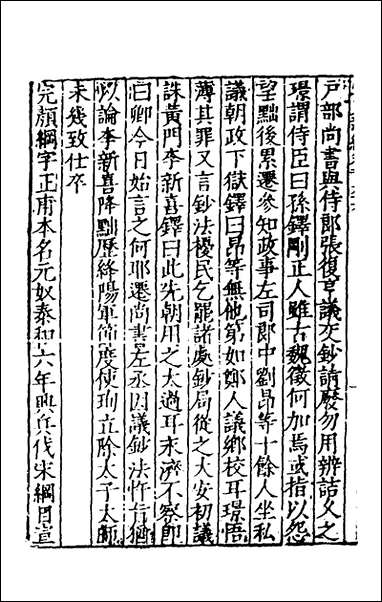 戶部尚書與侍郎張復亨議交鈔請廢勿用辨詰久之
璟謂侍臣曰孫鐸剛正人雖古魏徵何加焉或指以怨
望黜後累遷參知政事左司郎中劉昂等十餘人坐私
議朝政下獄鐸曰昂等無他第如鄭人議鄉校耳璟悟
薄其罪又言鈔法擾民乞罷諸處鈔局從之大安初議
誅黃門李新喜鐸曰此先朝用之太過耳永濟不察卽
曰卿今日始言之何耶遷尚書左丞因議鈔法忤旨猶
以論李新喜降黜歷絳陽軍節度使珣立除太子太師
未幾致仕卒
完顏綱字正甫本名元奴泰和六年興兵伐宋綱目宣